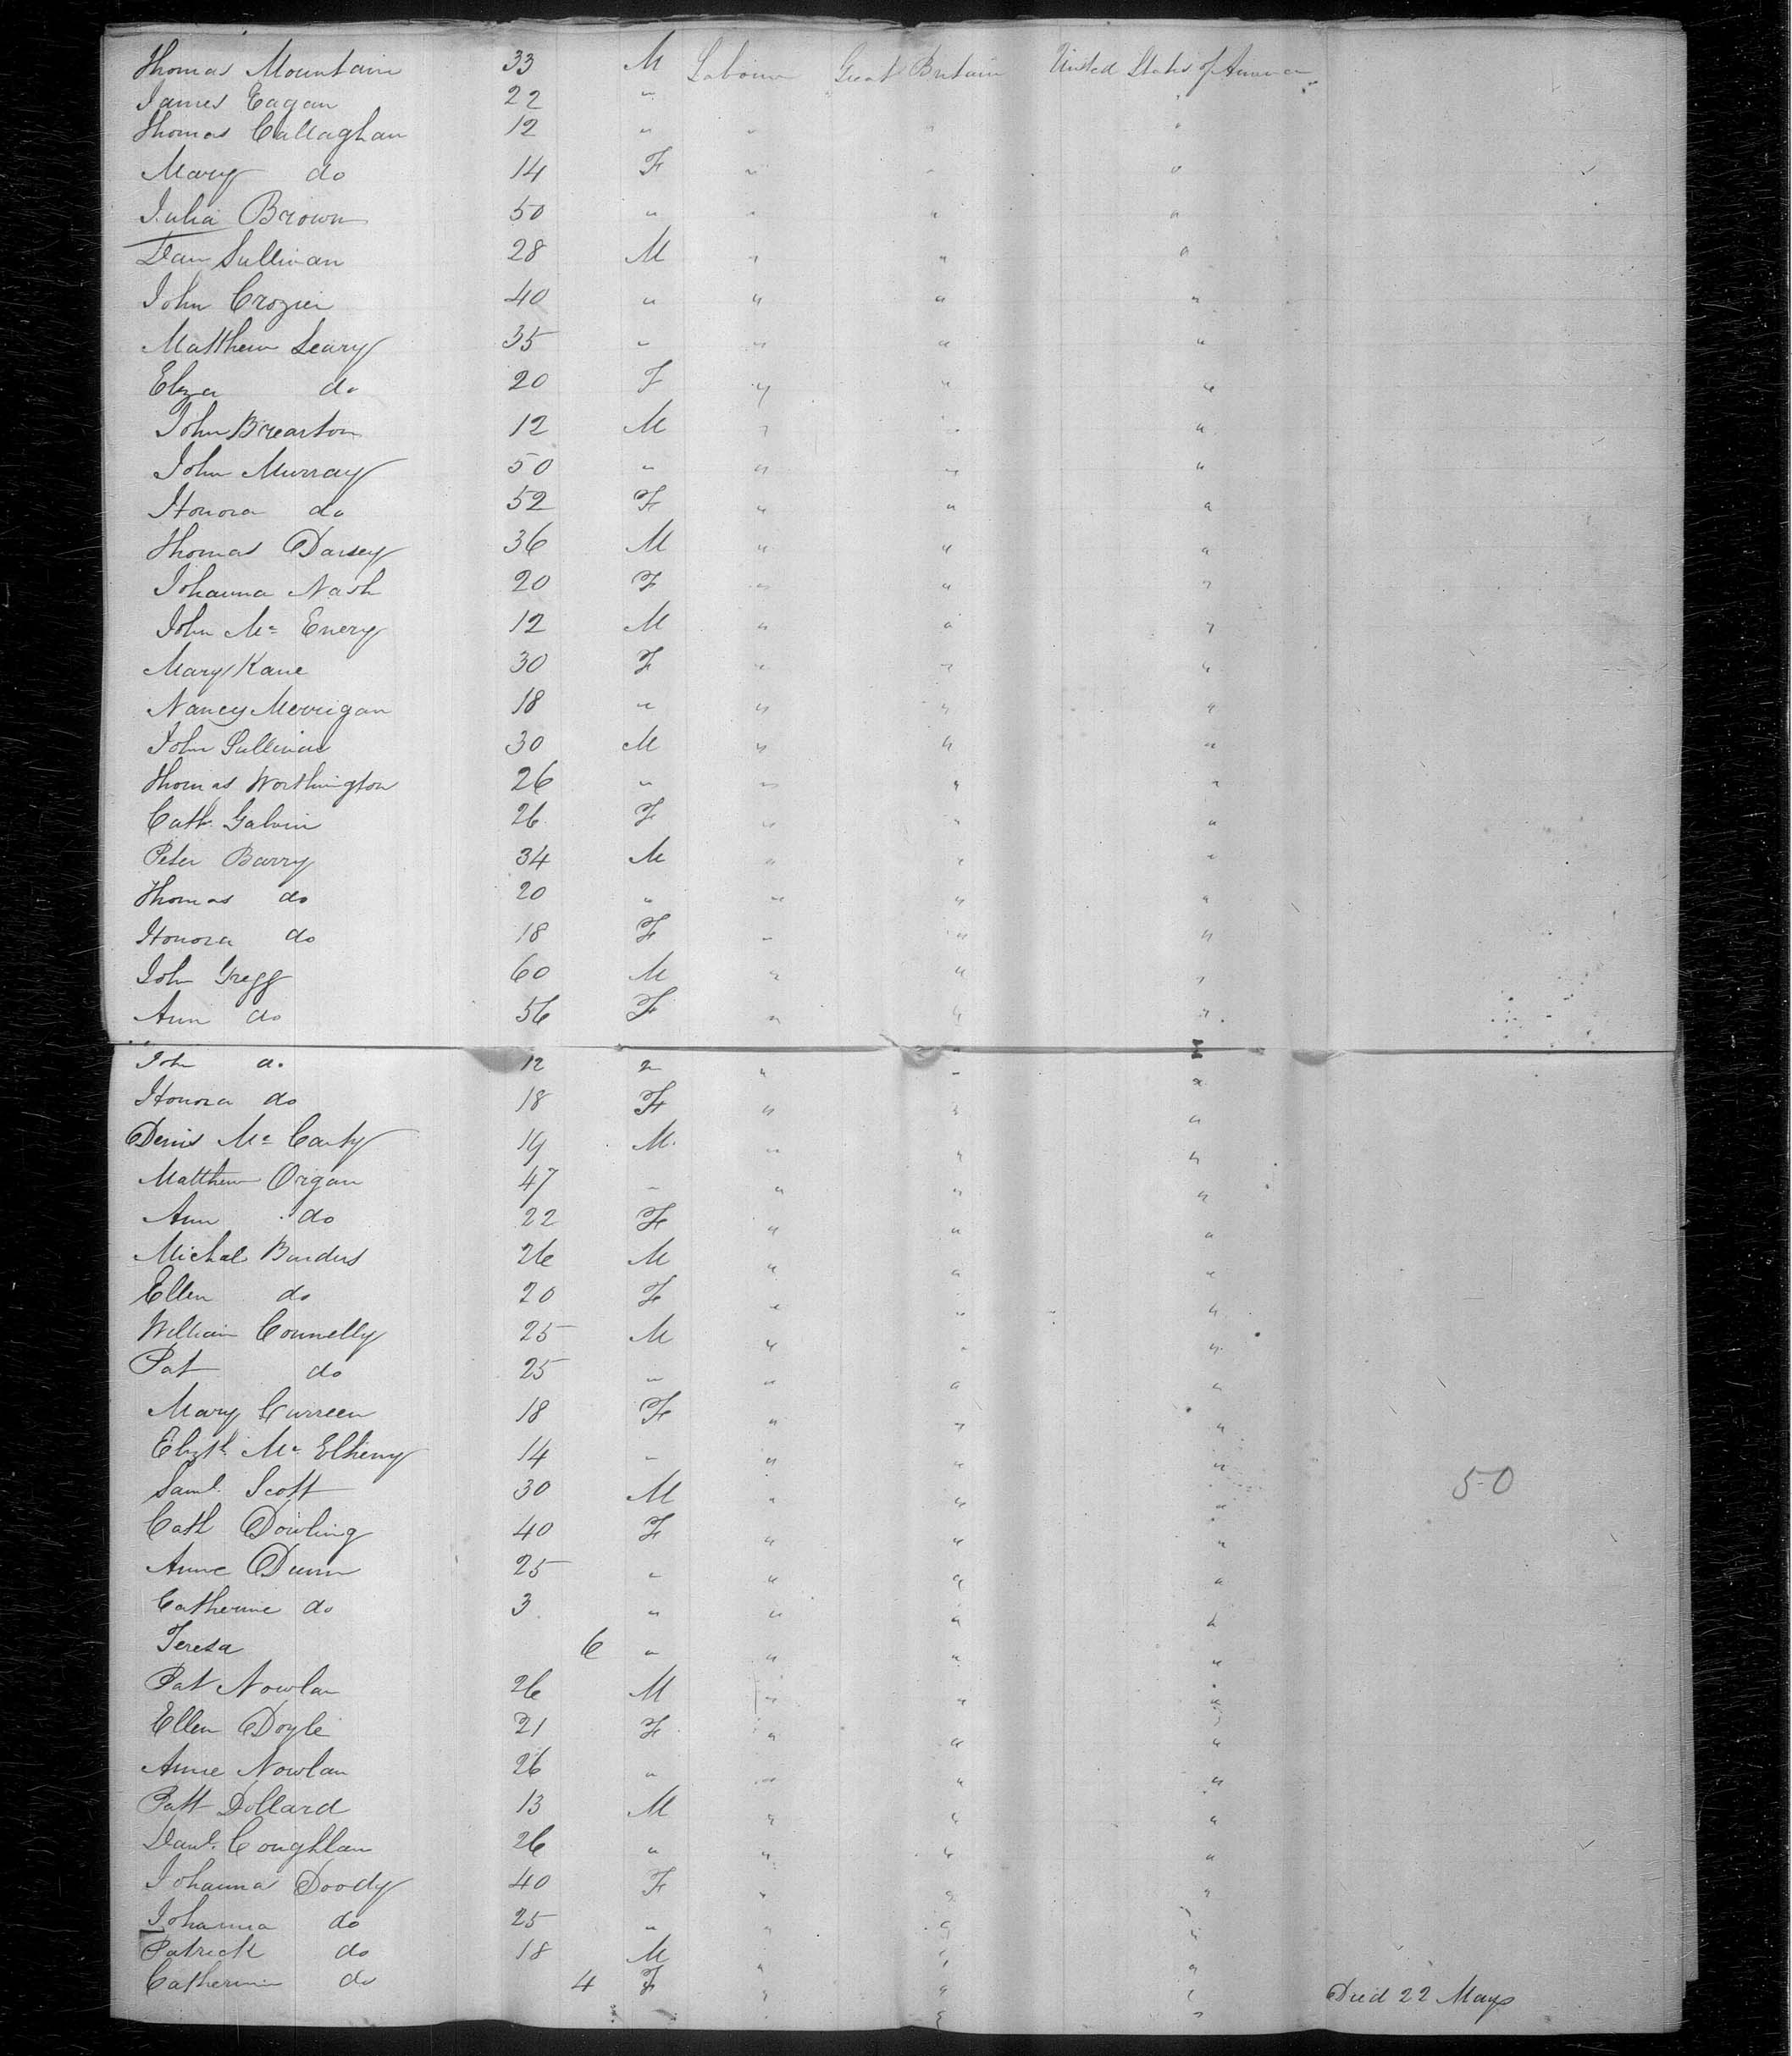 Thomas Mountain 33 M Labourer Great Britain United States of America
James Eagan 22 " "
Thomas Callaghan 12 " " " "
Mary do 14 F " " "
Julia Brown 50 " " " "
Dan Sullivan 28 M " " "
John Crozier 40 " " " "
Matthew Leary 35 " " " "
Eliza do 20 F " " "
John Brearton 12 M " " "
John Murray 50 " " " "
Honora do 52 F " " "
Thomas Darsey 36 M " " "
Johanna Nash 20 F " " "
John Mc Enery 12 M " " "
Mary Kane 30 F " " "
Nancy Merrigan 18 " " " "
John Sullivan 30 M " " "
Thomas Worthington 26 " " " "
Cath Galvin 26 F " " "
Peter Barry 34 M " " "
Thomas do 20 " " " "
Honora do 18 F " " "
John Gregg 60 M " " "
Ann do 56 F " " "
John do 12 " " "
Honora do 18 F " " "
Denis Mc Carty 19 M " " "
Matthew Organ 47 " " " "
Ann do 22 F " " "
Michal 26 M " " "
Ellen do 20 F " " "
William Connelly 25 M " " "
Pat do 25 " " " "
Mary Curreen 18 F " " "
Elizth Mc Elheny 14 " " " "
Saml Scott 30 M " " " 50
Cath Dowling 40 F " " "
Anne Dunn 25 " " " "
Catherine do 3 " " " "
Teresa 6 " " " "
Pat Nowlan 26 M " " "
Ellen Doyle 21 F " " "
Anne Nowlan 26 " " " "
Patt Dollard 13 M " " "
Danl Coughlan 26 " " " "
Johanna Doody 40 F " " "
Johanna do 25 " " " "
Patrick do 18 M " " "
Catherine do 4 F " " " Died 22 May